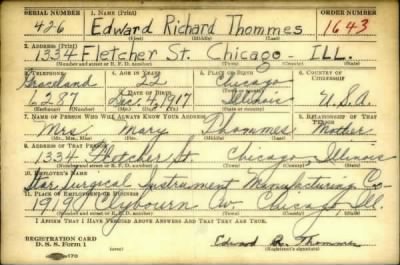 SERIAL NUMBER 1. NAME (Print) ORDER NUMBER
426 Edward Richard Thommes 1643
(First) (Middle) (Last)
2. ADDRESS (Print)
1334 Fletcher St. Chicago - ILL.
(Number and street or R. F. D. number) (Town) (County) (State)
3. TELEPHONE 4. AGE IN YEARS 5. PLACE OF BIRTH 6. COUNTRY OF CITIZENSHIP
Graceland 22 Chicago
DATE OF BIRTH
6297 Dec. 4, 1917 Illinois U.S.A.
7. NAME OF PERSON WHO WILL ALWAYS KNOW YOUR ADDRESS 8. RELATIONSHIP OF THAT PERSON
Mrs Mary Thommes Mother
9. ADDRESS OF THAT PERSON
1334 Fletcher St. Chicago, Illinois
(Number and street or R. F. D. number) (Town) (County) (State)
10. EMPLOYER'S NAME
Star Surgical Instrument Manufacturing Co.
11. PLACE OF EMPLOYMENT OR BUSINESS
1919 Clybourn Av Chicago Ill.
(Number and street or R. F. D. number) (Town) (County) (State)
I AFFIRM THAT I HAVE VERIFIED ABOVE ANSWERS AND THAT THEY ARE TRUE.
REGISTRATION CARD
D. S. S. Form 1 Edward R. Thommes
(Registrant's signature)